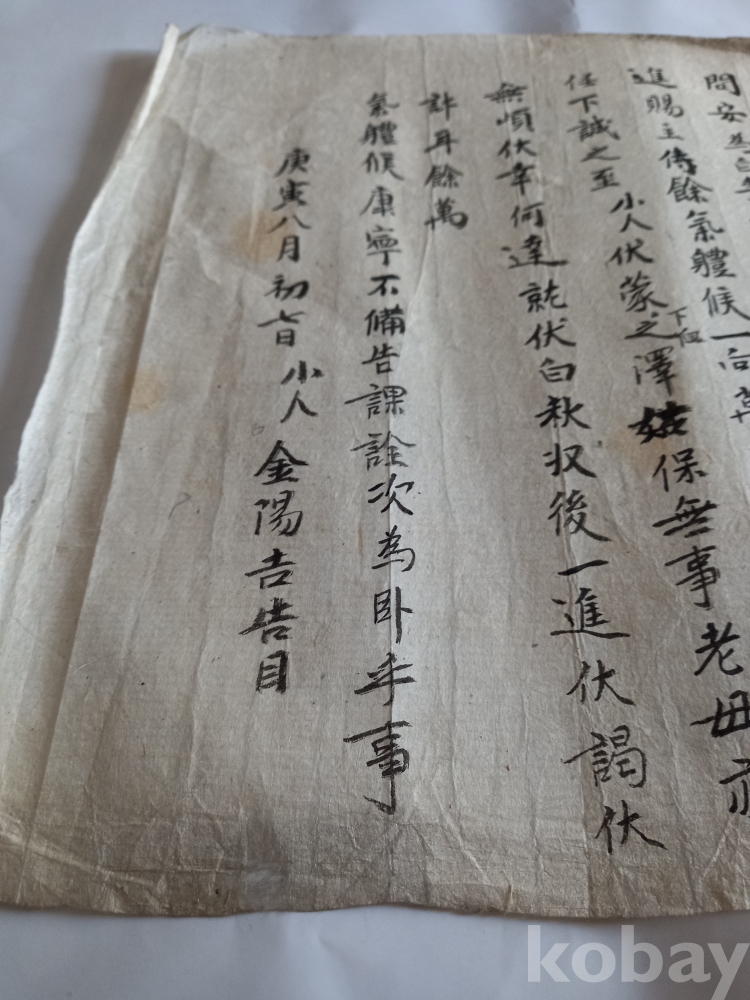 問安
進賜主侍餘氣體候一向
任下誠之至小人伏蒙下恤之澤姑保無事老母亦
無頉伏幸何達就伏白秋収後一進伏謁伏
計耳餘萬
氣體候康寧不備告課詮次為卧乎事
庚寅八月初七日小人金陽吉告目
kobay